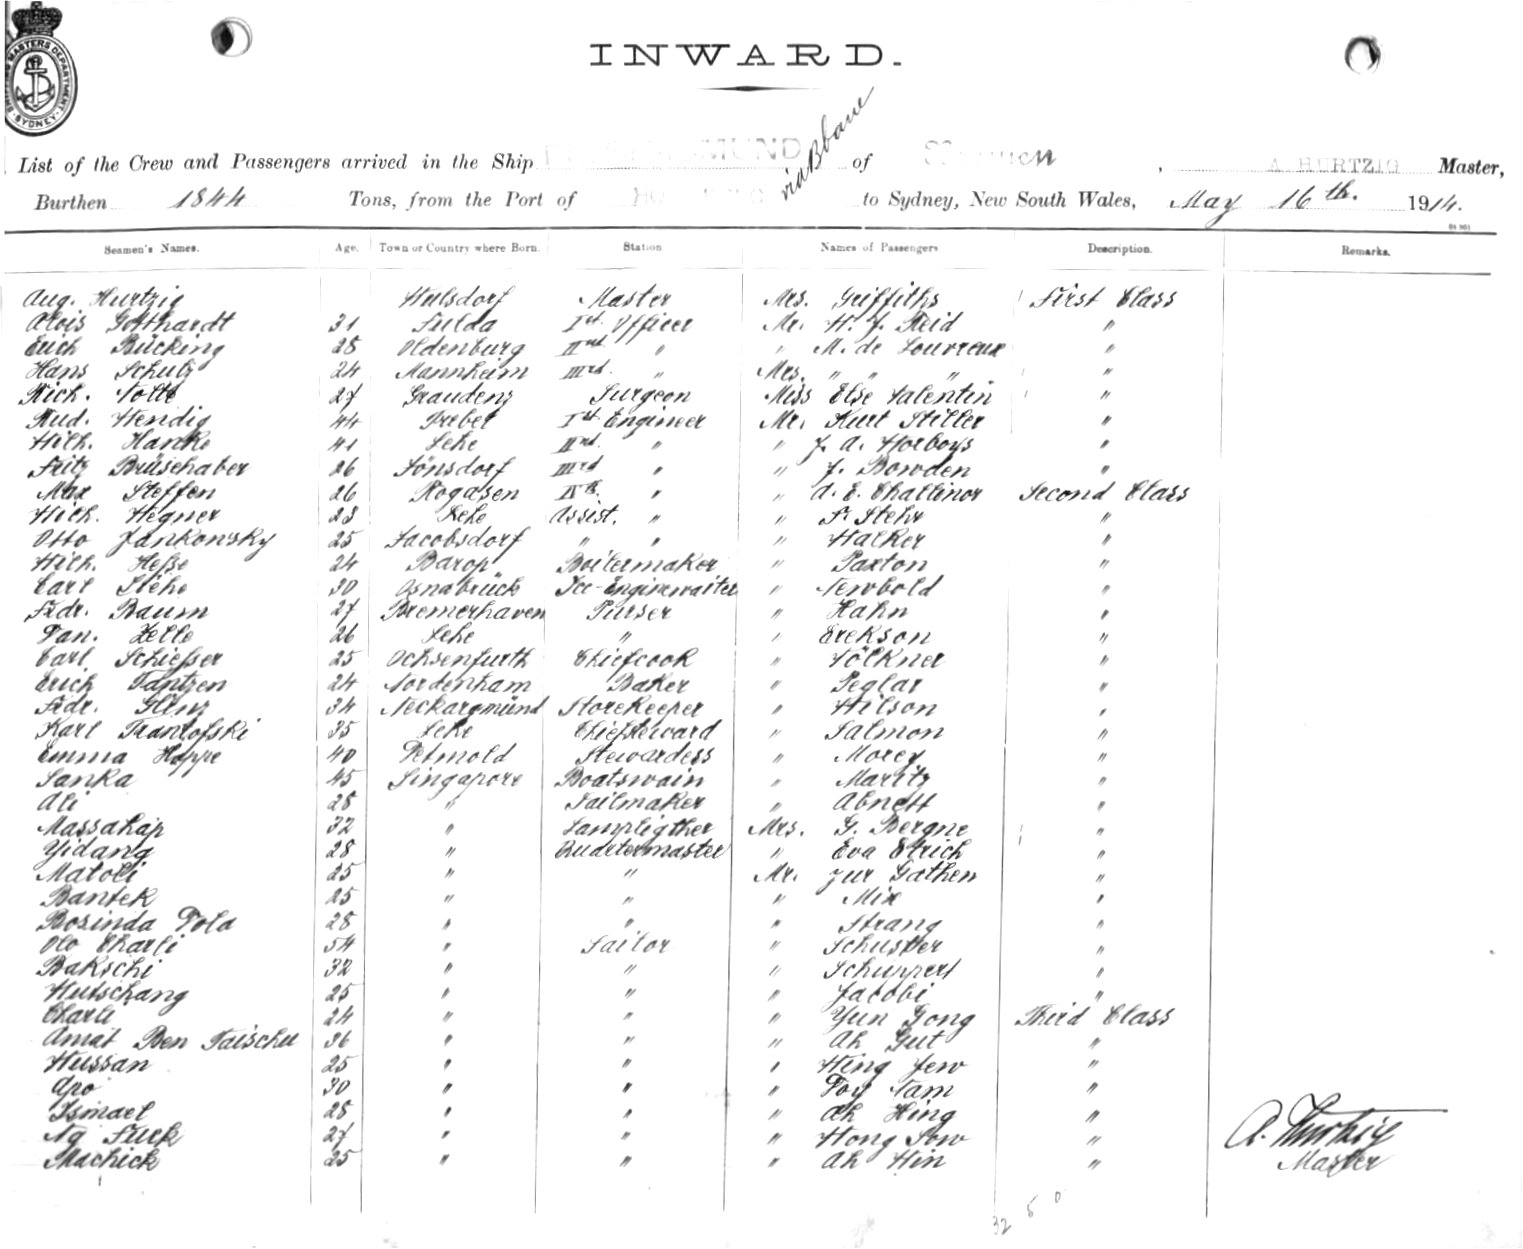 SHIPPING MASTERS DEPARTMENT SYDNEY
INWARD.
via Bbane
List of the Crew and Passengers arrived in the Ship of A. HURTZIG Master,
Burthen 1844 Tons, from the Port of to Sydney, New South Wales, May 16th. 1914.
Seamen's Names. Age. Town or Country where Born. Station Names of Passengers Description. Remarks.
Aug. Hurtzig Wulsdorf Master Mrs. Griffiths First Class
Alois Gotthardt 31 Fulda Ist Officer Mr. W. J. Reid "
Erich Bücking 28 Oldenburg IInd " " M. de Louvreux "
Hans Schulz 24 Mannheim IIIrd " Mrs. " " " "
Rich. Nolte 27 Graudenz Surgeon Miss Else Valentin "
Rud. Wendig 44 Trebel Ist Engineer Mr. Kurt Stiller "
Wilh. Hanke 41 Lehe IInd " " J. A. Worboys "
Fritz Brüsehaber 26 Jönsdorf IIIrd " " J. Bowden "
Max Steffen 26 Rogasen IVth " " A. E. Challinor Second Class
Wilh. Wegner 23 Lehe Assist. " " F. Stehr "
Otto Jankowsky 25 Jacobsdorf " " " Walker "
Wilh. Hesse 24 Barop Boilermaker " Paxton "
Carl Stehe 30 Osnabrück Ice-Enginewaiter " Newbold "
Frdr. Baum 27 Bremerhaven Purser " Hahn "
Van. Zelle 26 Lehe " " Erekson "
Carl Schiesser 25 Ochsenfurth Chiefcook " Völkner "
Erich Tantzen 24 Nordenham Baker " Peglar "
Frdr. Glenz 34 Neckargmünd Storekeeper " Wilson "
Karl Trantofski 35 Lehe Chiefsteward " Salmon "
Emma Hoppe 40 Detmold Stewardess " Morey "
Sanka 45 Singapore Boatswain " Maritz "
Ali 28 " Sailmaker " Abnett "
Massahap 32 " Lampligther Mrs. G. Bergne "
Yidang 28 " Quartermaster " Eva Etrich "
Matoli 25 " " Mr. zur Gathen "
Bantek 25 " " " Mix "
Bosinda Pola 28 " " " Strang "
Olo Charli 54 " Sailor " Schuster "
Bakschi 32 " " " Schuppert "
Hutschang 25 " " " Jacobi "
Charli 24 " " " Yun Gong Third Class
Amat Ben Taischu 36 " " " Ah Gut "
Hussan 25 " " " Wing Jew "
Apo 30 " " " Poy Nam "
Ismael 28 " " " Ah Hing "
Ng Fuck 27 " " " Hong Sow "
Machick 25 " " " Ah Hin "
A. Hurtzig
Master
32 5 0